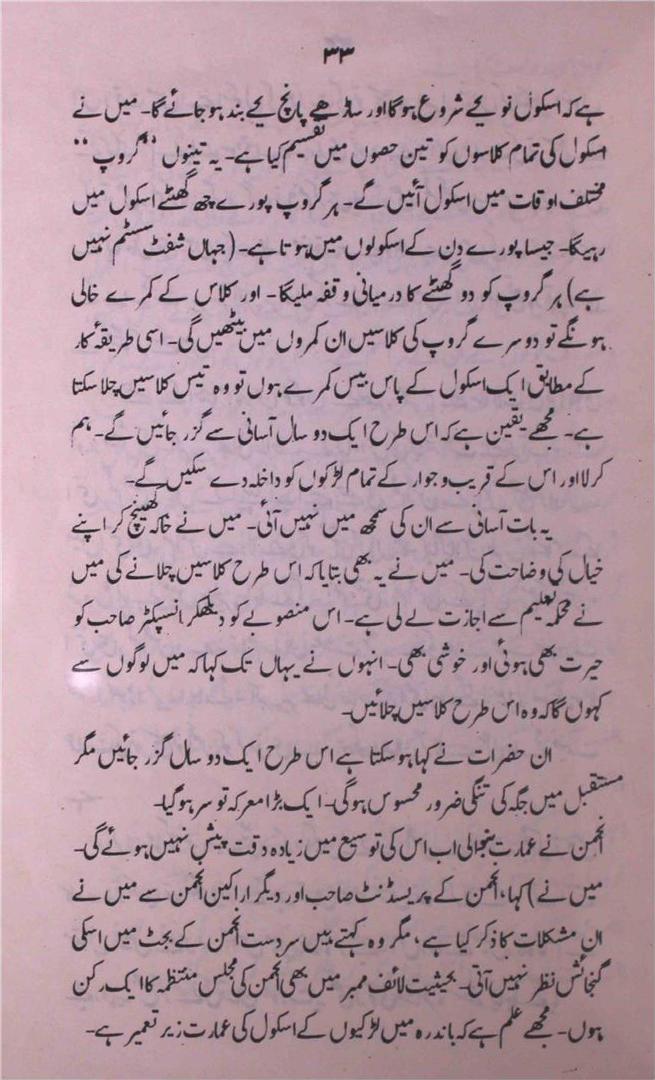 ۳۳
ہے کہ اسکول نو بجے شروع ہوگا اور ساڑھے پانچ بجے بند ہو جائے گا۔ میں نے
اسکول کی تمام کلاسوں کو تین حصوں میں تقسیم کیا ہے۔ یہ تینوں ”گروپ“
مختلف اوقات میں اسکول آئیں گے۔ ہر گروپ پورے چھ گھنٹے اسکول میں
رہیگا۔ جیسا پورے دن کے اسکولوں میں ہوتا ہے۔ (جہاں شفٹ سسٹم نہیں
ہے) ہر گروپ کو دو گھنٹے کا درمیانی وقفہ ملیگا۔ اور کلاس کے کمرے خالی
ہونگے تو دوسرے گروپ کی کلاسیں ان کمروں میں بیٹھیں گی۔ اسی طریقۂ کار
کے مطابق ایک اسکول کے پاس بیس کمرے ہوں تو وہ تیس کلاسیں چلا سکتا
ہے۔ مجھے یقین ہے کہ اس طرح ایک دو سال آسانی سے گزر جائیں گے۔ ہم
کرلا اور اس کے قریب و جوار کے تمام لڑکوں کو داخلہ دے سکیں گے۔
یہ بات آسانی سے ان کی سمجھ میں نہیں آئی۔ میں نے خاکہ کھینچ کر اپنے
خیال کی وضاحت کی۔ میں نے یہ بھی بتایا کہ اس طرح کلاسیں چلانے کی میں
نے محکمہ تعلیم سے اجازت لے لی ہے۔ اس منصوبے کو دیکھکر انسپکٹر صاحب کو
حیرت بھی ہوئی اور خوشی بھی۔ انہوں نے یہاں تک کہا کہ میں لوگوں سے
کہوں گا کہ وہ اس طرح کلاسیں چلائیں۔
ان حضرات نے کہا ہو سکتا ہے اس طرح ایک دو سال گزر جائیں مگر
مستقبل میں جگہ کی تنگی ضرور محسوس ہوگی۔ ایک بڑا معرکہ تو سر ہوگیا۔
انجمن نے عمارت بنوالی اب اس کی توسیع میں زیادہ دقت پیش نہیں ہوئے گی۔
میں نے) کہا، انجمن کے پریسڈنٹ صاحب اور دیگر اراکین انجمن سے میں نے
ان مشکلات کا ذکر کیا ہے، مگر وہ کہتے ہیں سردست انجمن کے بجٹ میں اسکی
گنجائش نظر نہیں آتی۔ بحیثیت لائف ممبر میں بھی انجمن کی مجلس منتظمہ کا ایک رکن
ہوں۔ مجھے علم ہے کہ باندرہ میں لڑکیوں کے اسکول کی عمارت زیر تعمیر ہے۔